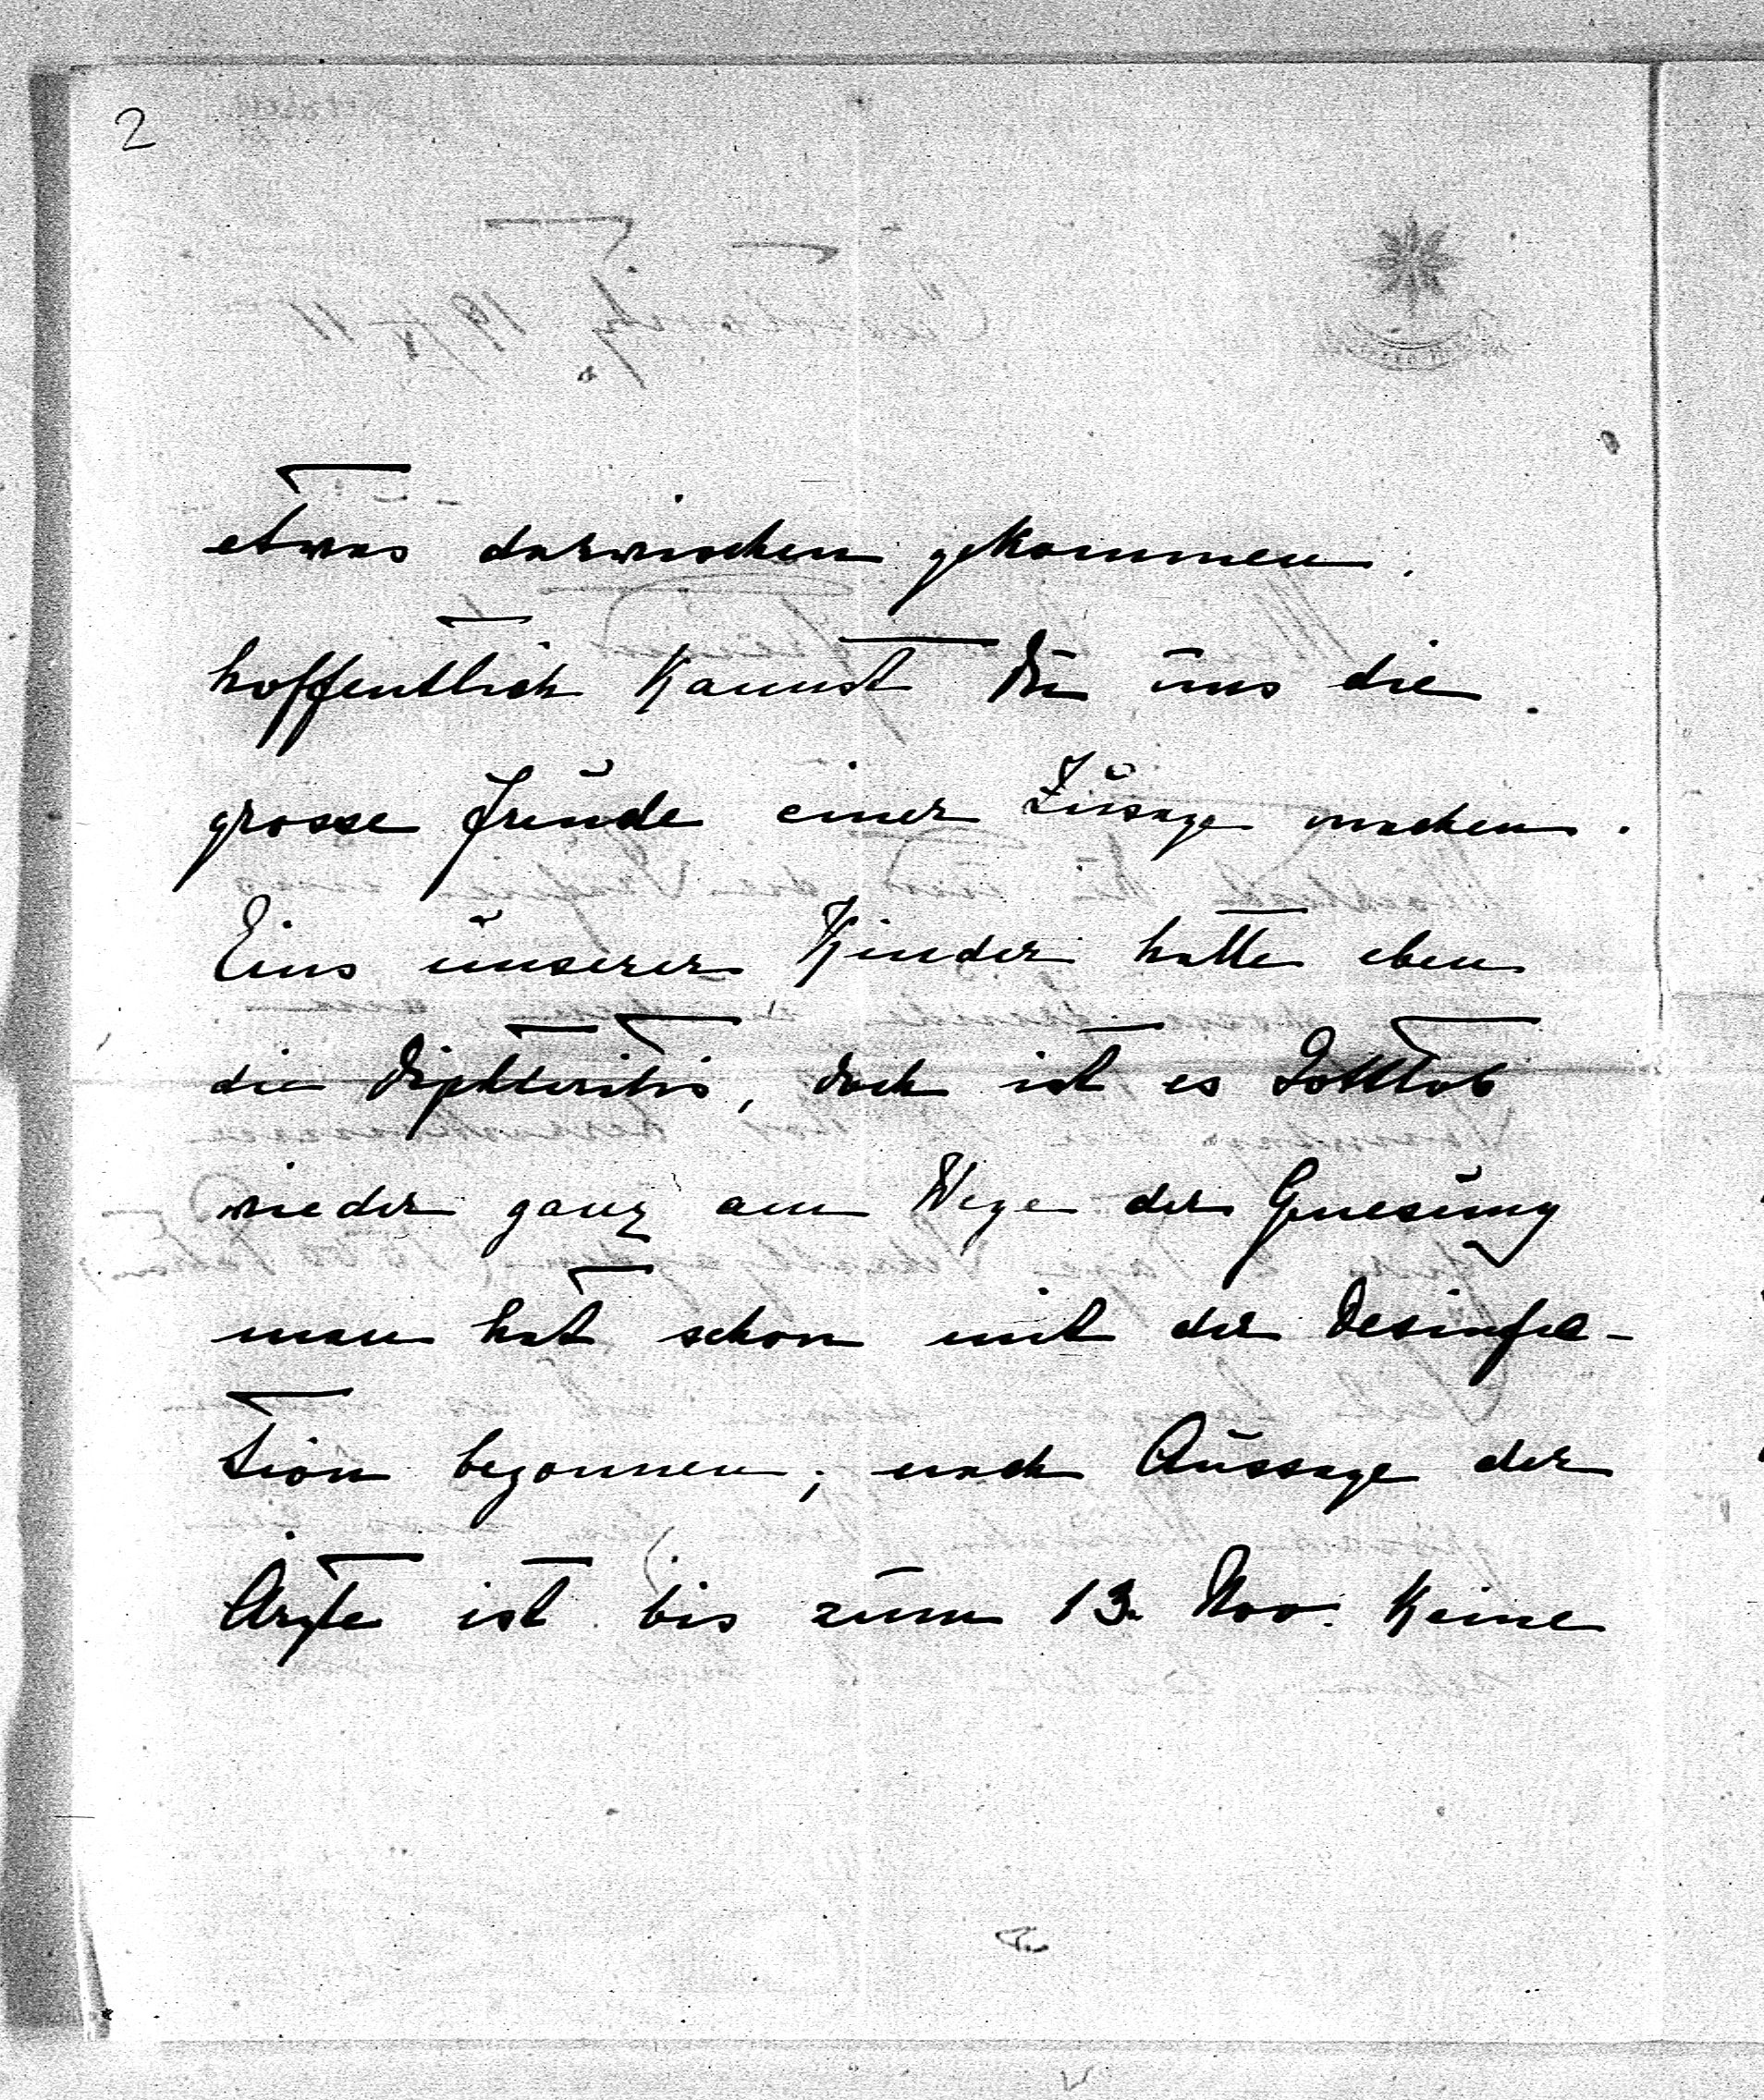 2
etwas darwischen gekommen.
hoffentlich Kannst Du uns die
grosse freude einer Zusage machen.
Eins unserer Kinder hatte eben
die Diphteritis, doch ist es Gottlob
wieder ganz am Wege der Genesung
man hat schon mit der Desinfec-
tion begonnen; nach Aussage der
Ärzte ist bis zum 13. Nov. Keine